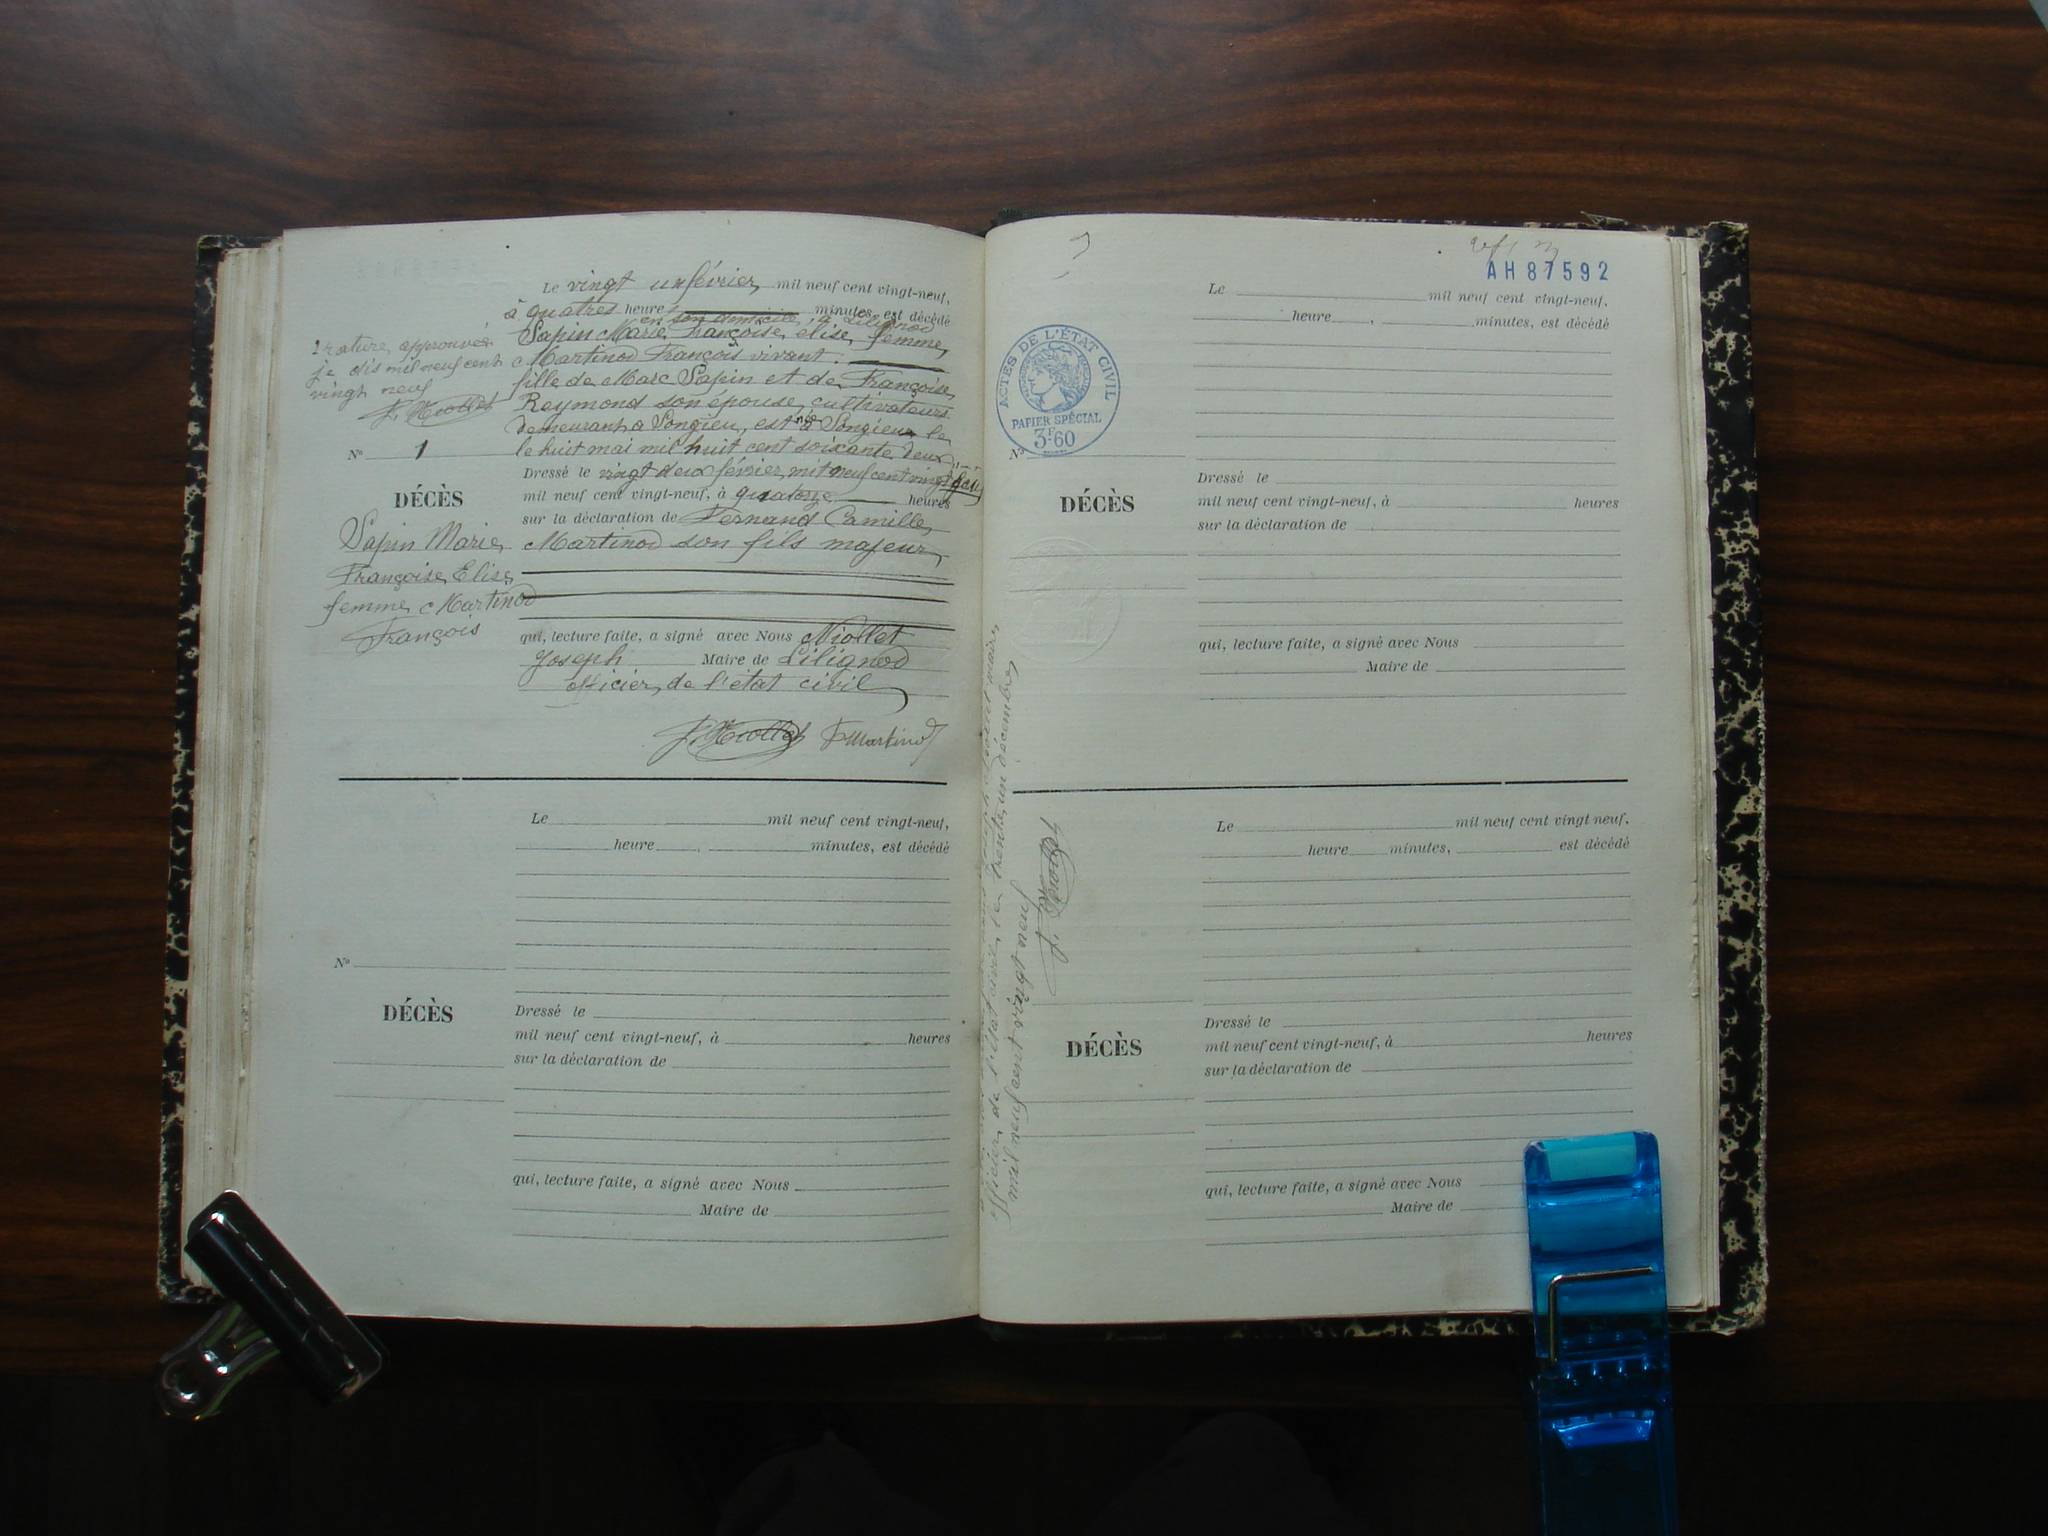 Le vingt un février mil neuf cent vingt-neuf,
à quatres heure minutes, est décédé
en son domicile, à Lilignod
Sapin Marie, Françoise, élise, femme
Martinod François vivant
fille de Marc Sapin et de Françoise
Reymond son épouse, cultivateurs
demeurant à Songieu, est née à Songieu le
le huit mai mil huit cent soixante deux
Dressé le vingt deux février mil neuf cent vingt neuf
mil neuf cent vingt-neuf, à quatorze heures
sur la déclaration de Fernand Camille
Martinod son fils majeur
qui, lecture faite, a signé avec Nous Niollet
Joseph Maire de Lilignod
officier de l'état civil
J. Niollet F Martinod
rature, approuvée
je dis mil neuf cent
vingt neuf
J. Niollet
No 1
DÉCÈS
Sapin Marie
Françoise, Elise
femme Martinod
François
Le mil neuf cent vingt-neuf,
heure , minutes, est décédé
No
DÉCÈS
Dressé le
mil neuf cent vingt-neuf, à heures
sur la déclaration de
qui, lecture faite, a signé avec Nous
Maire de
AH87592
Le mil neuf cent vingt-neuf,
heure , minutes, est décédé
ACTES DE L'ÉTAT CIVIL
PAPIER SPÉCIAL
3F.60
No
DÉCÈS
Dressé le
mil neuf cent vingt-neuf, à heures
sur la déclaration de
qui, lecture faite, a signé avec Nous
Maire de
officier de l'état civil le trente un décembre
mil neuf cent vingt neuf
J. Niollet
Le mil neuf cent vingt-neuf,
heure minutes, est décédé
DÉCÈS
Dressé le
mil neuf cent vingt-neuf, à heures
sur la déclaration de
qui, lecture faite, a signé avec Nous
Maire de